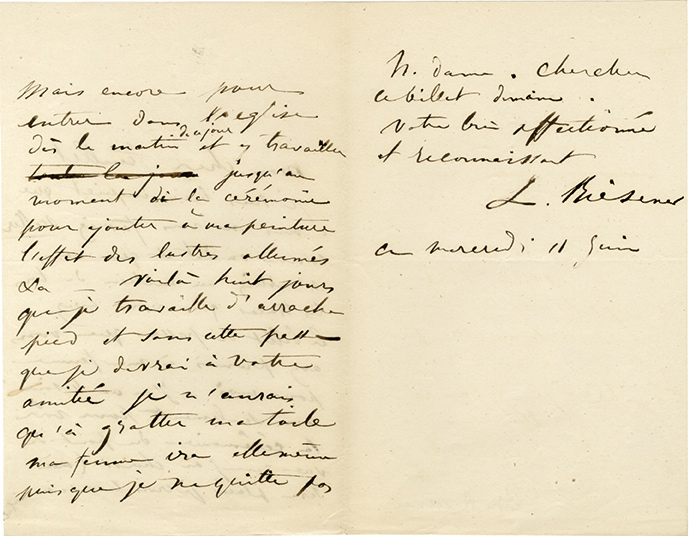 Mais encore pour
entrer dans l'eglise
dès le matin de ce jour et y travailler
toute la jour jusqu'au
moment de la cérémonie
pour ajouter à ma peinture
l'effet des lustres allumés
La _ voilà huit jours
que je travaille d'arrache
pied et sans cette passe
que je devrai à votre
amitié je n'aurais
qu'à gratter ma toile
ma femme ira elle même
puisque je ne quitte pas
N. dame. chercher
ce billet dimanc.
Votre bien affectionné
et reconnaissant
L. Riesener
ce mercredi 11 Juin